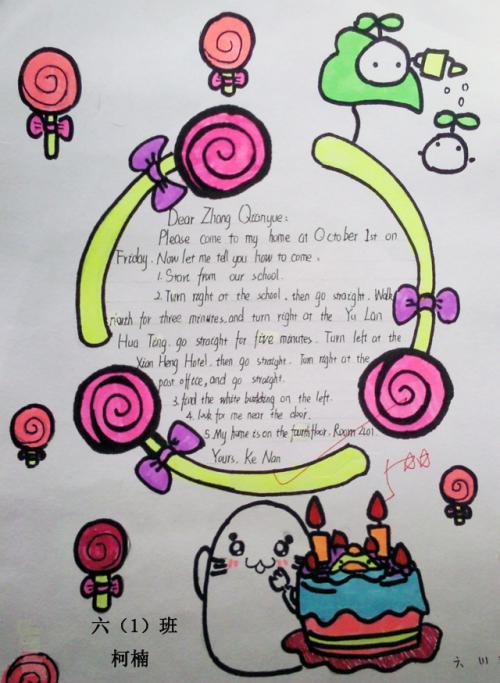 Dear Zhang Qianyue:
Please come to my home at October 1st on
Friday. Now let me tell you how to come.
1. Start from our school.
2. Turn right at the school, then go straight. Walk
for three minutes, and turn right at the Yu Lan
Hua Tang. go straight for five minutes. Turn left at the
Xian Heng Hotel. then go straight. Turn right at the
post office, and go straight.
3. find the white building on the left.
4. look for me near the door.
5. My home is on the fourth floor, Room 401.
Yours, Ke Nan
六（1）班
柯楠
六